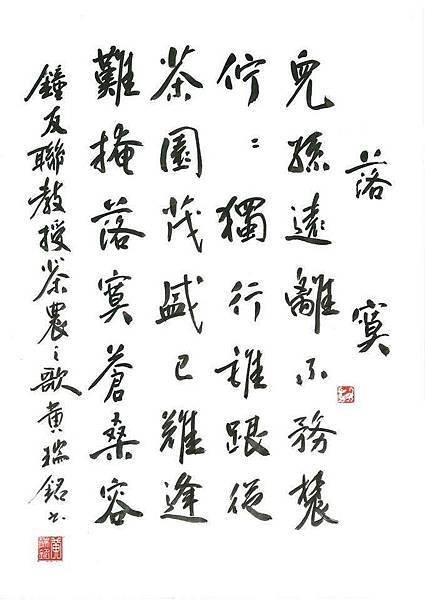 落寞
兒孫遠離不務農
獨行誰跟從
茶園茂盛已難逢
難掩落寞蒼桑容
鐘友聯教授茶農之歌黃瑞銘書